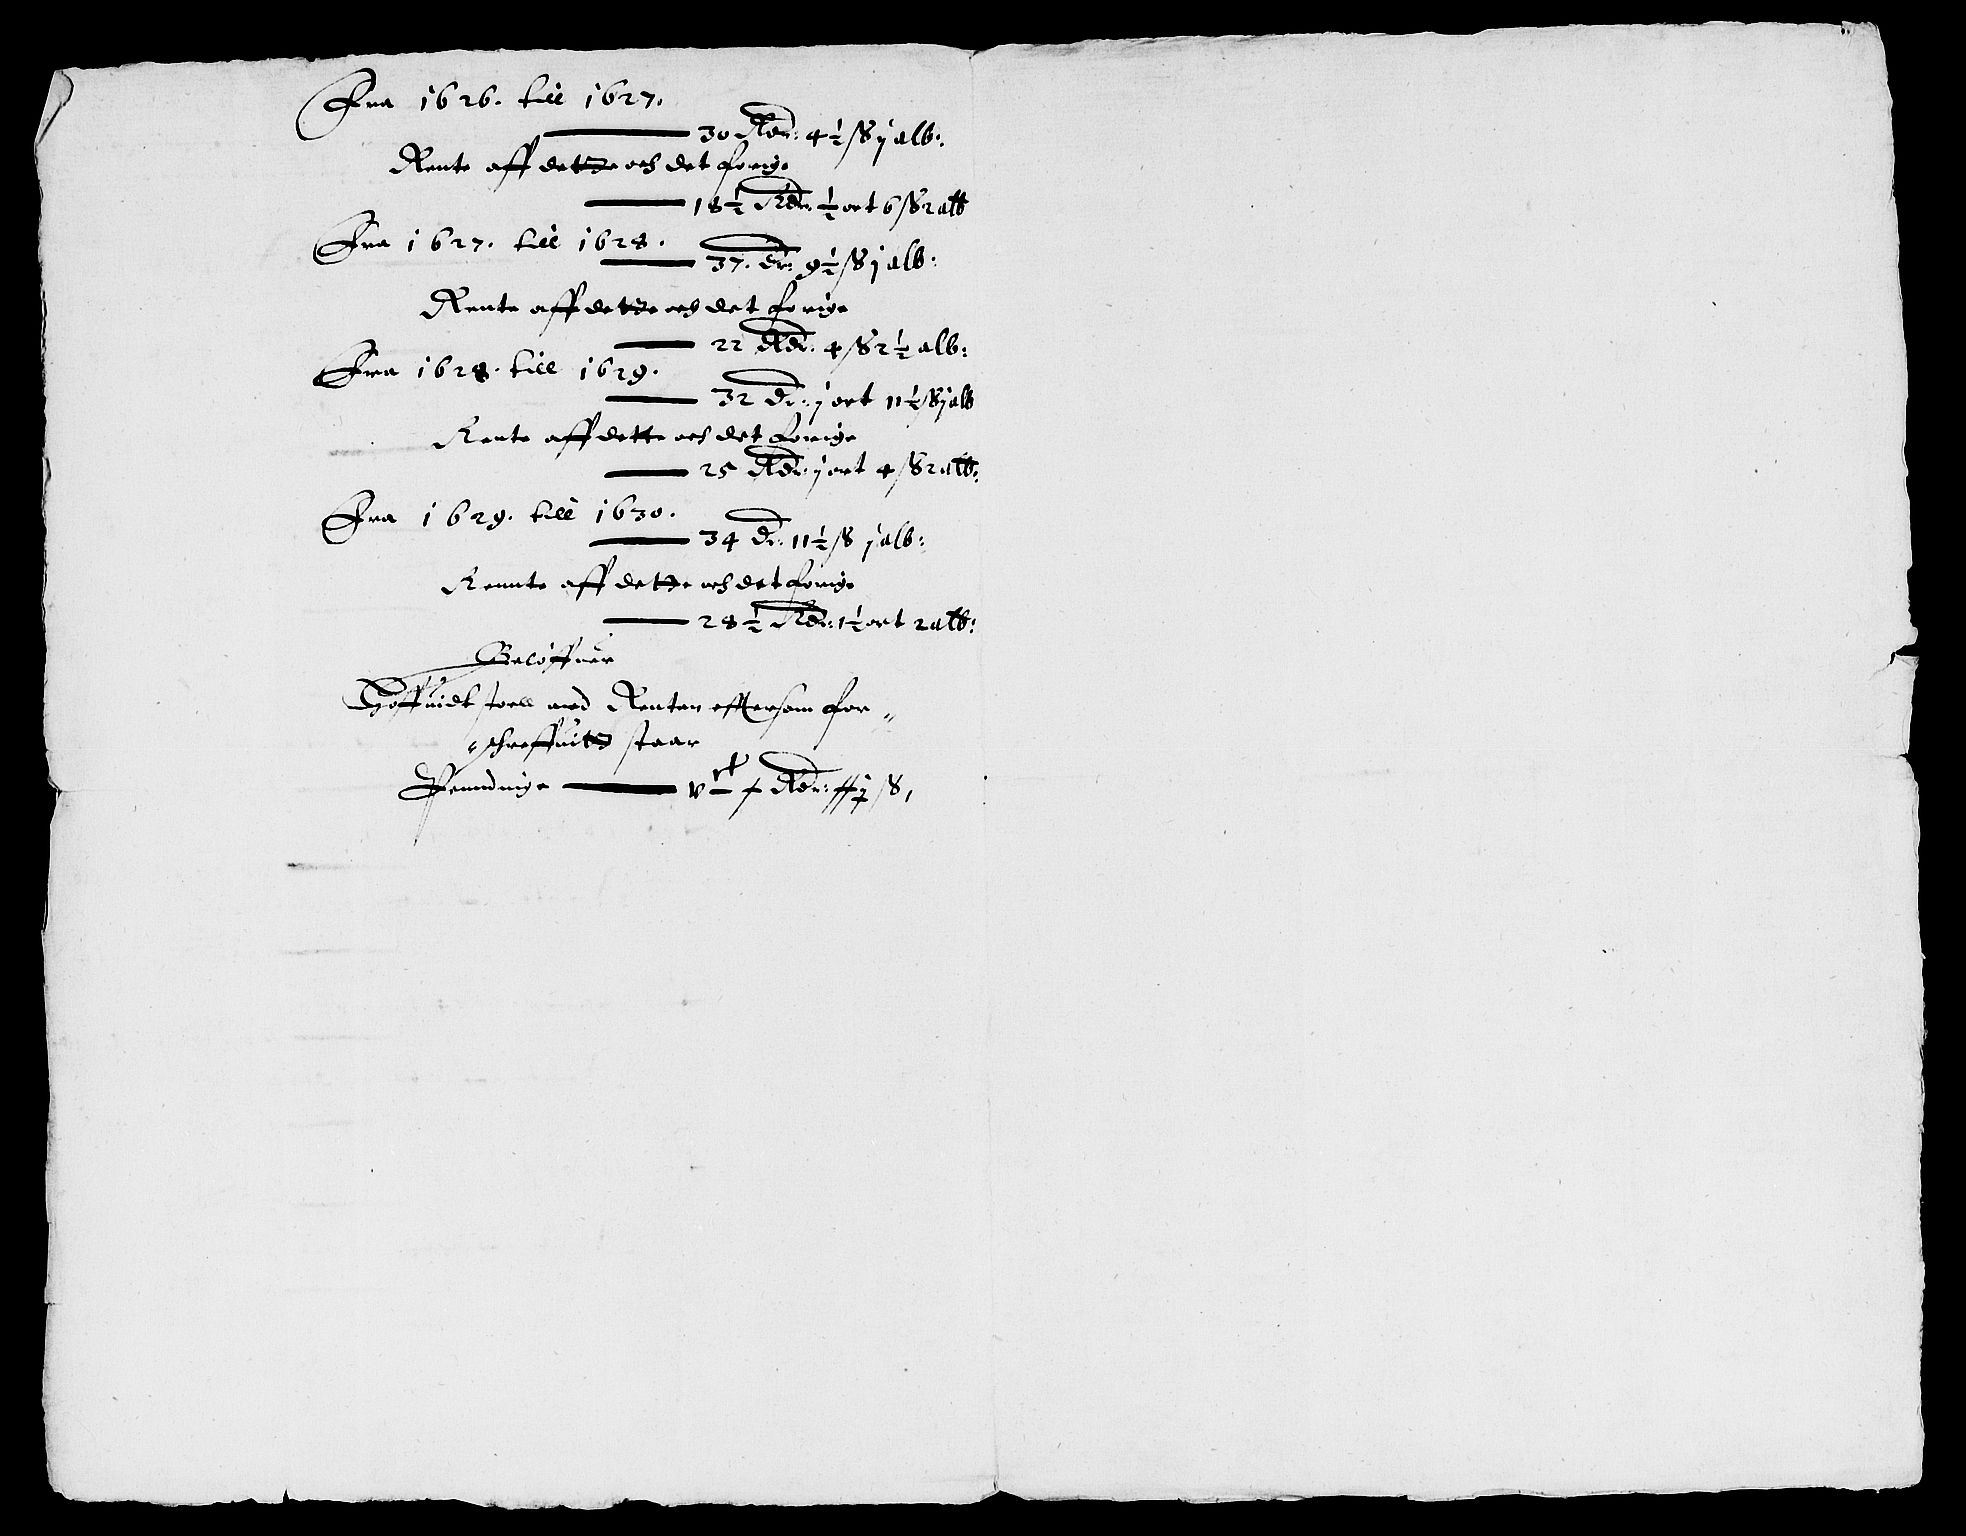 Fra 1626. till 1627.
30 Rdr: 4½ ß j alb:
Rente aff dette och det forige
18½ Rdr: ½ ort 6 ß 2 alb
Fra 1627. till 1628.
37. dr: 9½ ß j alb:
Rente aff dette och det forige
22 Rdr: 4 ß 2½ alb:
Fra 1628. till 1629.
32 dr: j ort 11½ ß j alb
Rente aff dette och det forige
25 Rdr: j ort 4 ß 2 alb:
Fra 1629. till 1630.
34 dr: 11½ ß j alb:
Rennte aff dette och det forige
28½ Rdr: 1½ ort 2 alb:
Beløffuer
Høffuidt stoell med Renten efftersom for„
„schreffuits staar
Penndinge Rdr: ß,